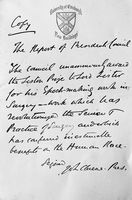 Copy
The Report of President & Council
The Council unanimously award
the Lister Prize Lord Lister
for his Epoch-making work in
Surgery - work which has
revolutionized the Science &
Practice of Surgery and which
has conferred inestimable
benefits on the Human Race.
Signed
Pres.